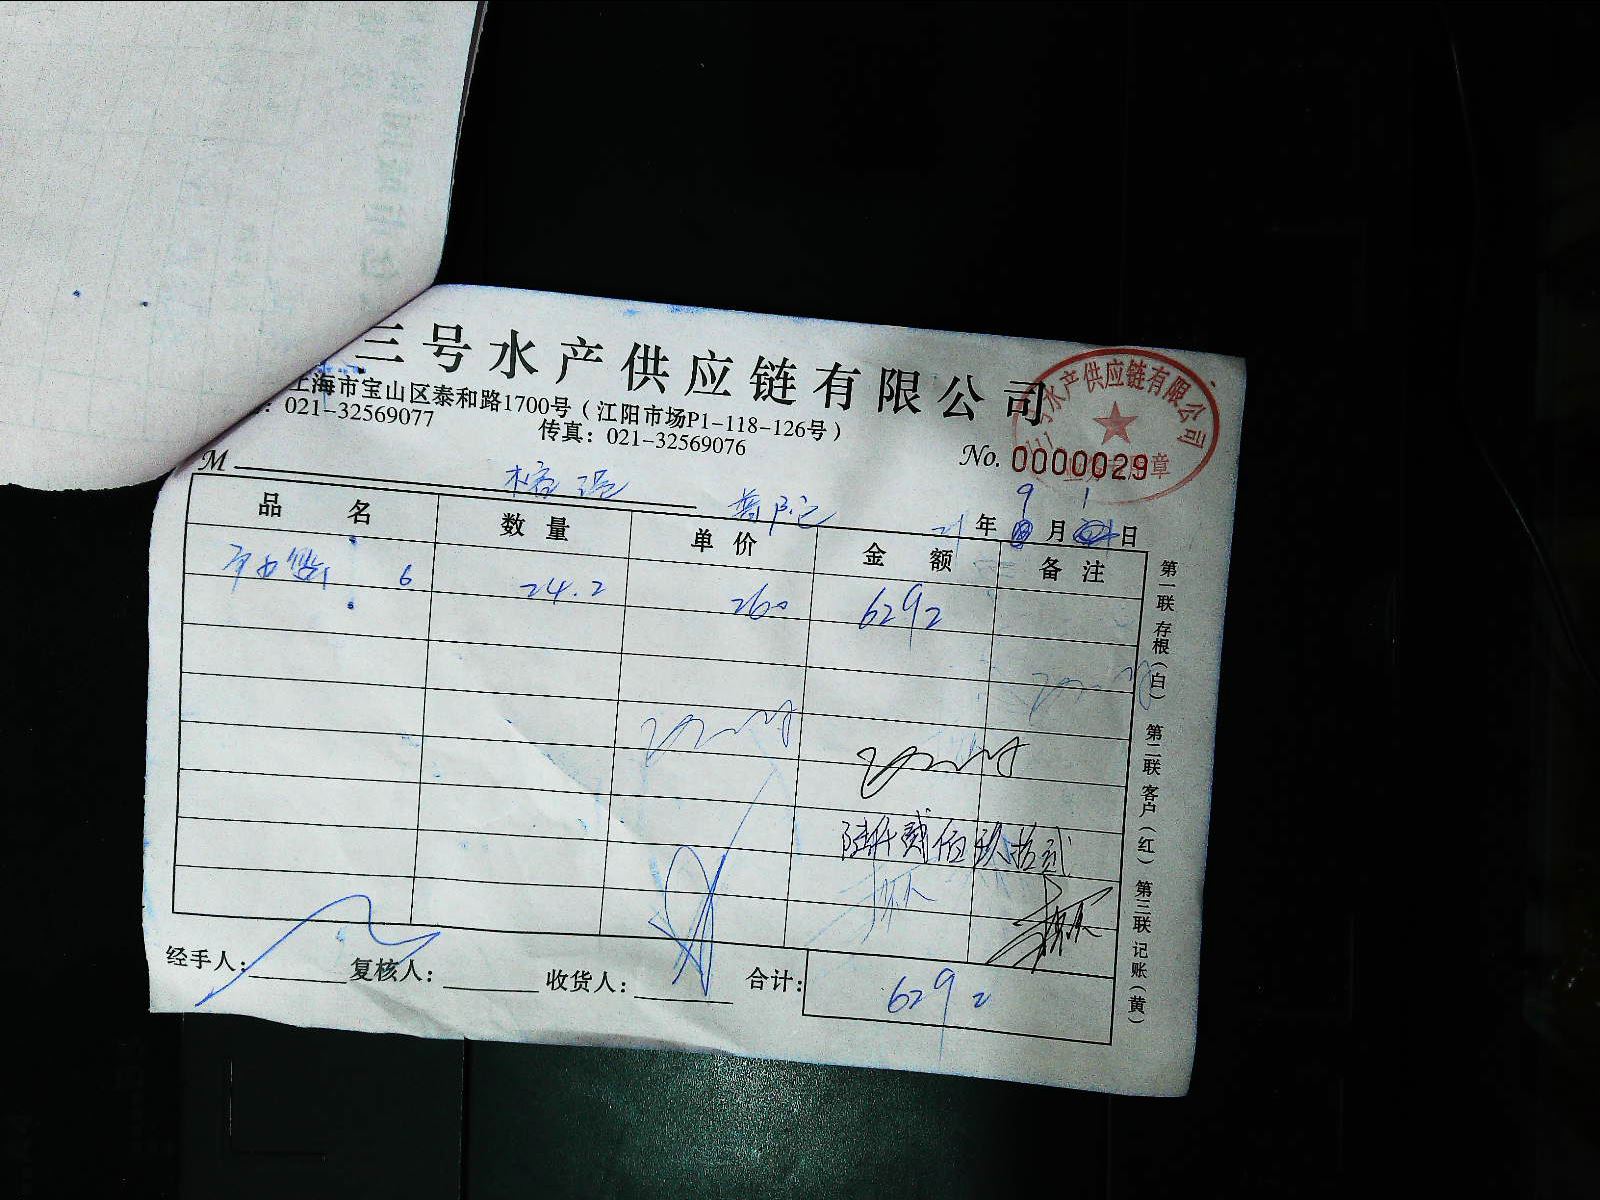 三号水产供应链有限公司
上海市宝山区泰和路1700号（江阳市场P1-118-126号）
021-32569077 传真：021-32569076
水产供应链有限公司
No. 0000029
M
普陀 21年9月1日
品名 数量 单价 金额 备注
6 24.2 260 6292
陆仟贰佰玖拾贰
经手人： 复核人： 收货人： 合计： 6292
第一联 存根（白） 第二联 客户（红） 第三联 记账（黄）